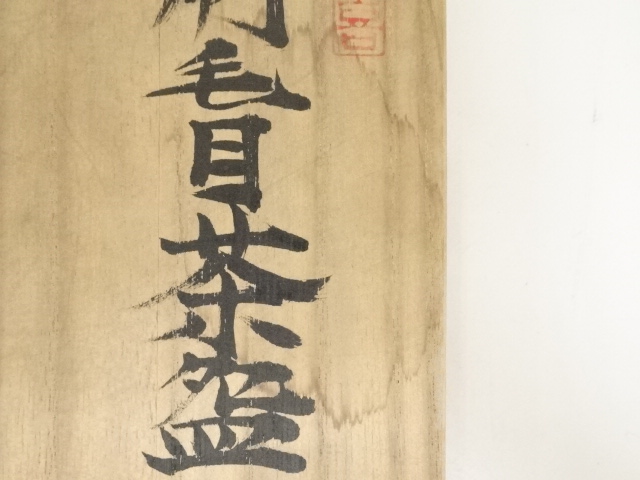 刷毛目茶盌